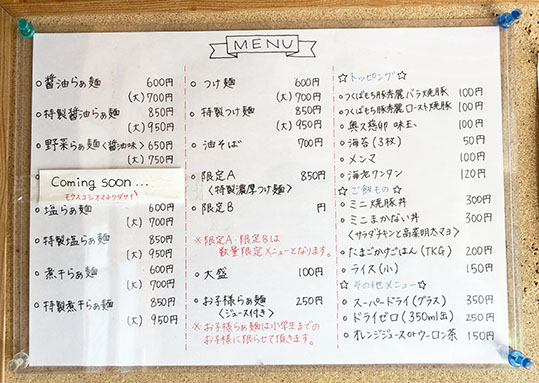 MENU
○醤油らぁ麺 600円
(大)700円
○特製醤油らぁ麺 850円
(大)950円
○野菜らぁ麺〈醤油味〉650円
(大)750円
Coming soon...
モウスコシオマチクダサイ
○塩らぁ麺 600円
(大)700円
○特製塩らぁ麺 850円
(大)950円
○煮干らぁ麺 600円
(大)700円
○特製煮干らぁ麺 850円
(大)950円
○つけ麺 600円
(大)700円
○特製つけ麺 850円
(大)950円
○油そば 700円
○限定A 850円
〈特製濃厚つけ麺〉
○限定B 円
※限定A・限定Bは
数量限定メニューとなります。
○大盛 100円
○お子様らぁ麺 250円
〈ジュース付き〉
※お子様らぁ麺は小学生までの
お子様に限らせて頂きます。
☆トッピング☆
○つくばもち豚秀麗 バラ焼豚 100円
○つくばもち豚秀麗 ロースト焼豚 100円
○奥久慈卵 味玉 100円
○海苔(3枚) 50円
○メンマ 100円
○海老ワンタン 120円
☆ご飯もの☆
○ミニ焼豚丼 300円
○ミニまかない丼 300円
〈サラダチキンと高菜明太マヨ〉
○たまごかけごはん(TKG) 200円
○ライス(小) 150円
☆その他メニュー☆
○スーパードライ(グラス) 350円
○ドライゼロ(350ml缶) 250円
○オレンジジュースorウーロン茶 150円